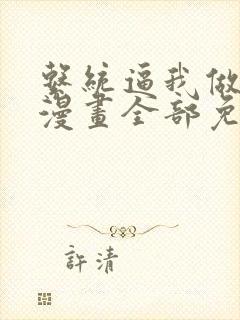 繫統逼我做
漫畫全部免
許清